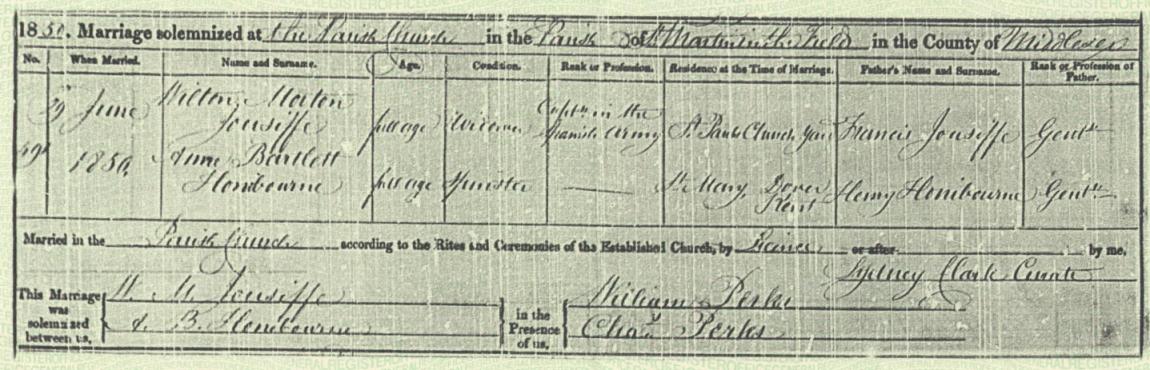 1850. Marriage solemnized at the Parish Church in the Parish of St Martin in the Field in the County of Middlesex
No. When Married. Name and Surname. Age. Condition. Rank or Profession. Residence at the Time of Marriage. Father's Name and Surname. Rank or Profession of Father.
29 June 1850. Wilton Morton Jousiffe full age Widower Captn in the Spanish Army St Pauls Church Yard Francis Jousiffe Gentn
Anne Bartlett Honibourne full age Spinster St Mary, Dover Kent Henry Honibourne Gentn
Married in the Parish Church according to the Rites and Ceremonies of the Established Church, by Licence or after by me,
Sydney Clark Curate
This Marriage was solemnized between us, W. M. Jousiffe
A. B. Honibourne
in the Presence of us, William Perks
Chas. Perks